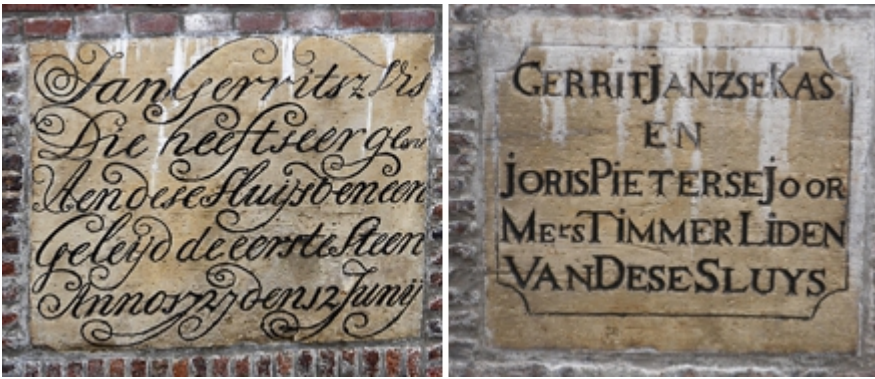 Jan Gerritsz Vis
Die heeft seer gern
Aen dese Sluijs beneen
Geleijd de eerste Steen
Anno 1727 den 12 Junij
GERRIT JANZSE KAS
EN
JORIS PIETERSE JOOR
MEERS TIMMER LIDEN
VAN DESE SLUYS